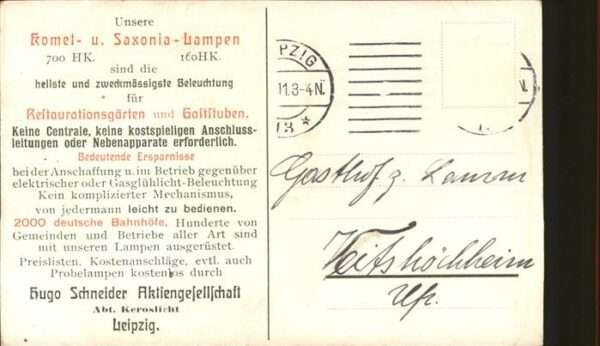 Unsere
Komet- u. Saxonia-Lampen
700 HK. 160HK.
sind die
hellste und zweckmässigste Beleuchtung
für
Restaurationsgärten und Gaststuben.
Keine Centrale, keine kostspieligen Anschluss-
leitungen oder Nebenapparate erforderlich.
Bedeutende Ersparnisse
bei der Anschaffung u. im Betrieb gegenüber
elektrischer oder Gasglühlicht-Beleuchtung
Kein komplizierter Mechanismus,
von jedermann leicht zu bedienen.
2000 deutsche Bahnhöfe, Hunderte von
Gemeinden und Betriebe aller Art sind
mit unseren Lampen ausgerüstet.
Preislisten, Kostenanschläge, evtl. auch
Probelampen kostenlos durch
Hugo Schneider Aktiengesellschaft
Abt. Keroslicht
Leipzig.
PZIG
11.3-4N.
13 *
N.
Gasthof z.
Veitshöchheim
Ufr.